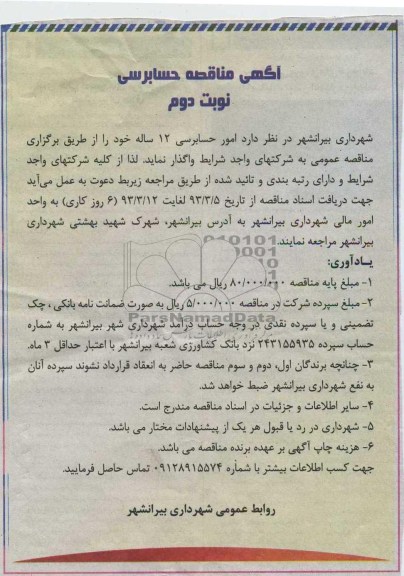 آگهی مناقصه حسابرسی
نوبت دوم
شهرداری بیرانشهر در نظر دارد امور حسابرسی ۱۲ ساله خود را از طریق برگزاری
مناقصه عمومی به شرکتهای واجد شرایط واگذار نماید. لذا از کلیه شرکتهای واجد
شرایط و دارای رتبه بندی و تائید شده از طریق مراجعه زیربط دعوت به عمل می‌آید
جهت دریافت اسناد مناقصه از تاریخ ۹۳/۳/۵ لغایت ۹۳/۳/۱۲ (۶ روز کاری) به واحد
امور مالی شهرداری بیرانشهر به آدرس بیرانشهر، شهرک شهید بهشتی شهرداری
بیرانشهر مراجعه نمایند.
یـادآوری:
۱- مبلغ پایه مناقصه ۸۰/۰۰۰/۰۰۰ ریال می باشد.
۲- مبلغ سپرده شرکت در مناقصه ۵/۰۰۰/۰۰۰ ریال به صورت ضمانت نامه بانکی ، چک
ParsNamadData
تضمینی و یا سپرده نقدی در وجه حساب درآمد شهرداری شهر بیرانشهر به شماره
حساب سپرده ۲۴۳۱۵۵۹۳۵ نزد بانک کشاورزی شعبه بیرانشهر با اعتبار حداقل ۳ ماه.
۳- چنانچه برندگان اول، دوم و سوم مناقصه حاضر به انعقاد قرارداد نشوند سپرده آنان
به نفع شهرداری بیرانشهر ضبط خواهد شد.
۴- سایر اطلاعات و جزئیات در اسناد مناقصه مندرج است.
۵- شهرداری در رد یا قبول هر یک از پیشنهادات مختار می باشد.
۶- هزینه چاپ آگهی بر عهده برنده مناقصه می باشد.
جهت کسب اطلاعات بیشتر با شماره ۰۹۱۲۸۹۱۵۵۷۴ تماس حاصل فرمایید.
روابط عمومی شهرداری بیرانشهر